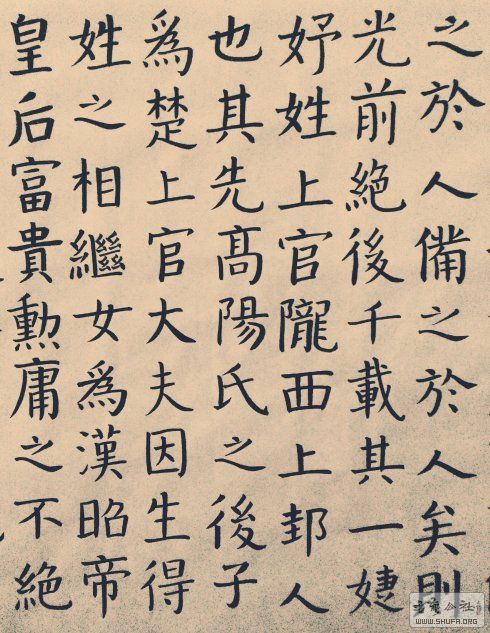 之於人備之於人矣則
光前絶後千載其一婕
妤姓上官隴西上邽人
也其先高陽氏之後子
爲楚上官大夫因生得
姓之相繼女爲漢昭帝
皇后富貴勳庸之不絶
WWW.SHUFA.ORG